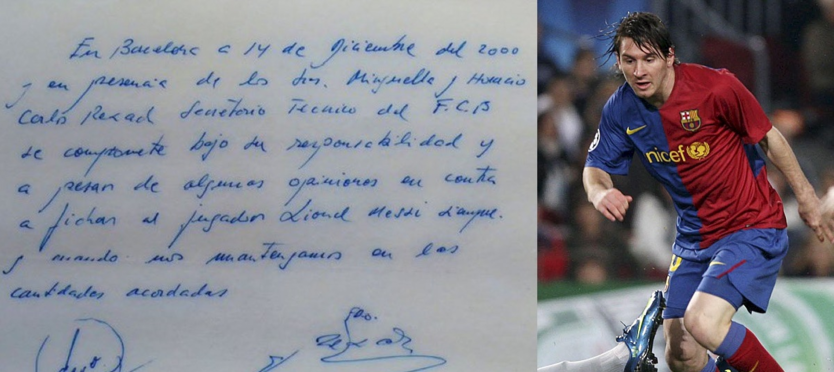 En Barcelona a 14 de Diciembre del 2000
y en presencia de los Srs. Minguella y Horacio
Carlos Rexach Secretario Tecnico del F.C.B
se compromete bajo su responsabilidad y
a pesar de algunas opiniones en contra
a fichar al jugador Lionel Messi siempre
y cuando nos mantengamos en las
cantidades acordadas
unicef